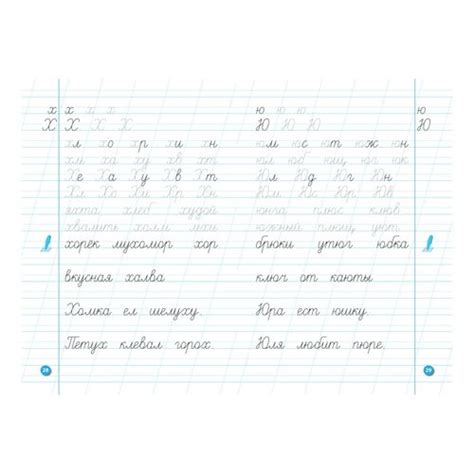 х х х х
Х Х Х Х
хл хо хр хи хн
хм ха ху хв хт
Хе Ха Ху Хв Хт
Хл Хо Хи Хр Хн
яхта хлеб худой
хвалить халат
хорёк мухомор хор
вкусная халва
Хомка ел шелуху.
Петух клевал горох.
28
ю ю ю ю
Ю Ю Ю Ю
юм юс ют юж юн
юл юб ющ юг юк
Юл Юд Юг Юн
Юм Юс Юр Юв
юнга плюс клюв
южный плющ уют
брюки утюг юбка
ключ от каюты
Юра ест юшку.
Юля любит пюре.
29